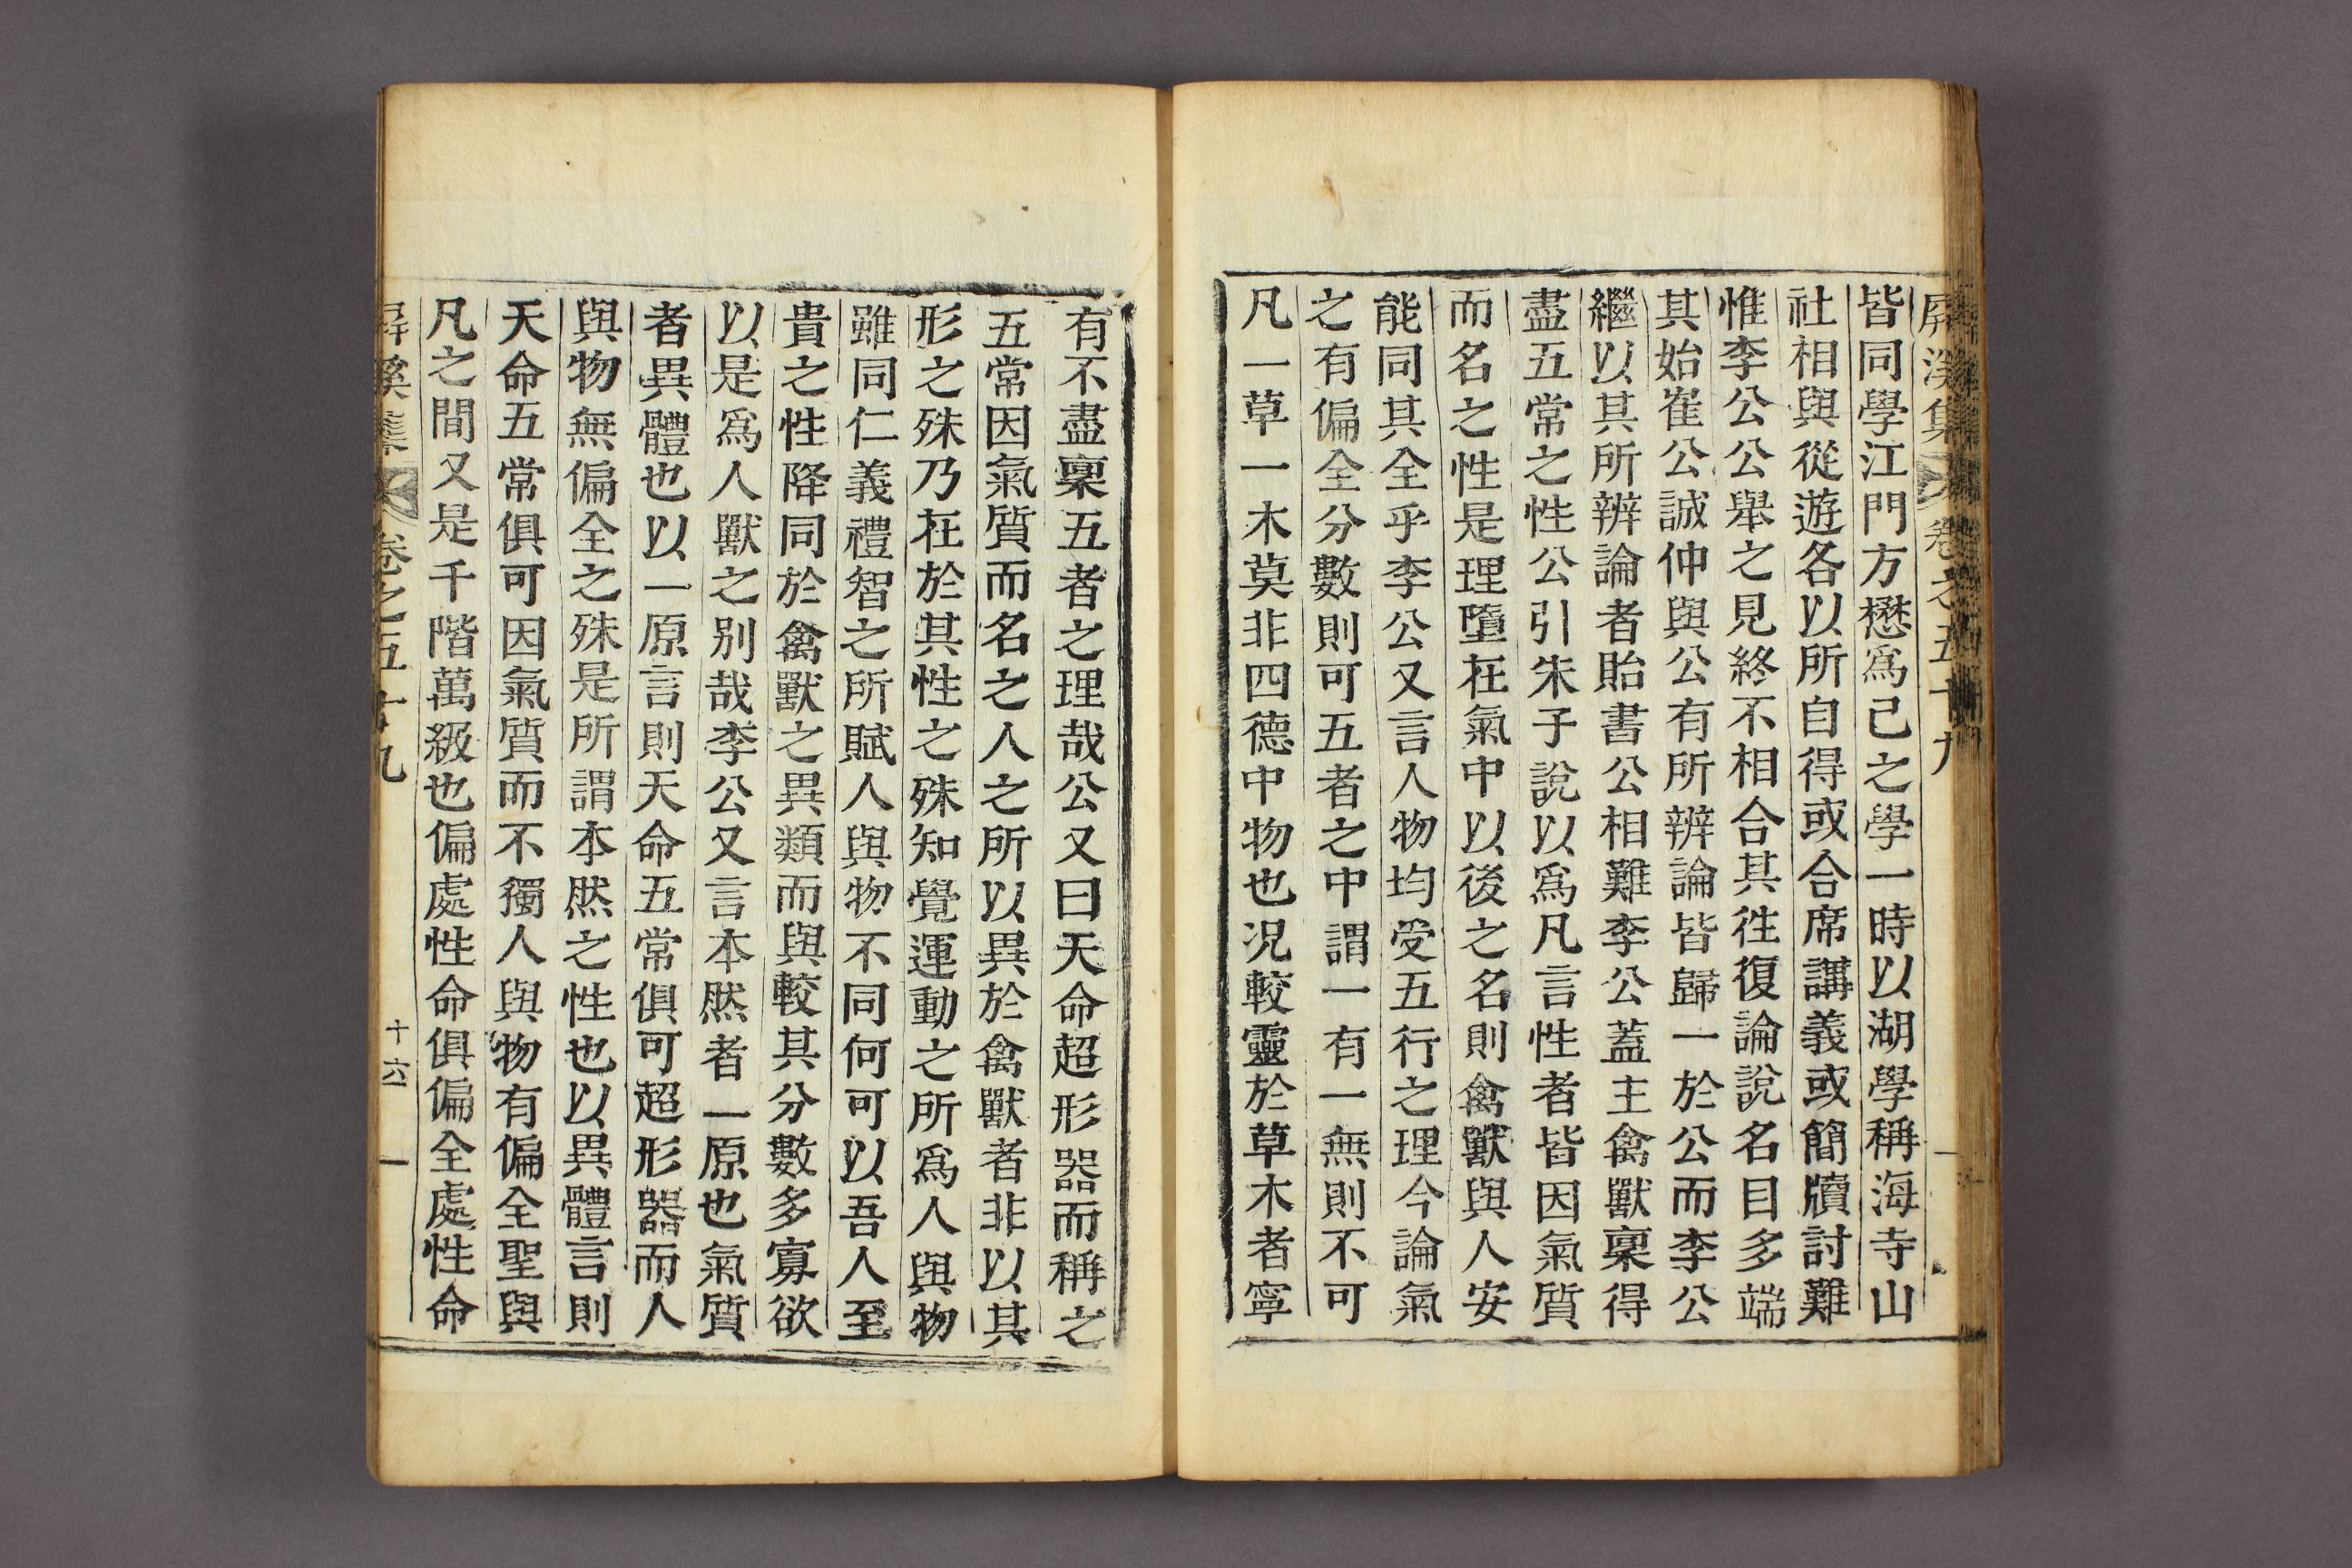 屛溪集 卷之五十九
皆同學江門方懋爲己之學一時以湖學稱海寺山
社相與從遊各以所自得或合席講義或簡牘討難
惟李公公舉之見終不相合其徃復論說名目多端
其始崔公誠仲與公有所辨論皆歸一於公而李公
繼以其所辨論者貽書公相難李公蓋主禽獸稟得
盡五常之性公引朱子說以爲凡言性者皆因氣質
而名之性是理墮在氣中以後之名則禽獸與人安
能同其全乎李公又言人物均受五行之理今論氣
之有偏全分數則可五者之中謂一有一無則不可
凡一草一木莫非四德中物也况較靈於草木者寧
有不盡稟五者之理哉公又曰天命超形器而稱之
五常因氣質而名之人之所以異於禽獸者非以其
形之殊乃在於其性之殊知覺運動之所爲人與物
雖同仁義禮智之所賦人與物不同何可以吾人至
貴之性降同於禽獸之異類而與較其分數多寡欲
以是爲人獸之別哉李公又言本然者一原也氣質
者異體也以一原言則天命五常俱可超形器而人
與物無偏全之殊是所謂本然之性也以異體言則
天命五常俱可因氣質而不獨人與物有偏全聖與
凡之間又是千階萬級也偏處性命俱偏全處性命
屛溪集 卷之五十九 十六